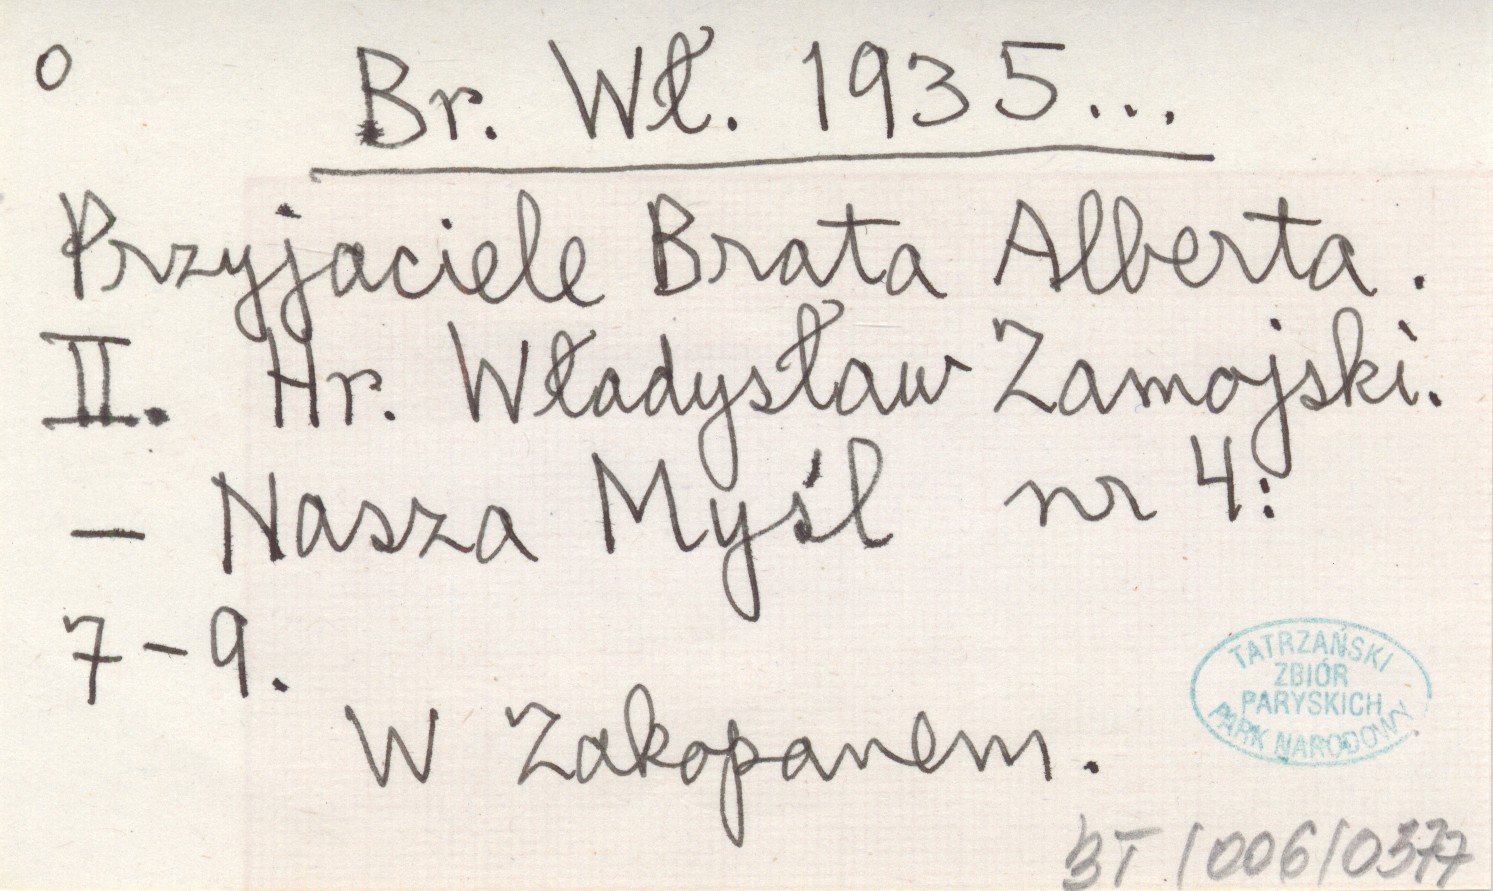 o
Br. Wł. 1935...
Przyjaciele Brata Alberta.
II. Hr. Władysław Zamojski.
— Nasza Myśl nr 4:
7-9.
W Zakopanem.
TATRZAŃSKI
ZBIÓR
PARYSKICH
PARK NARODOWY
BT/006/0377